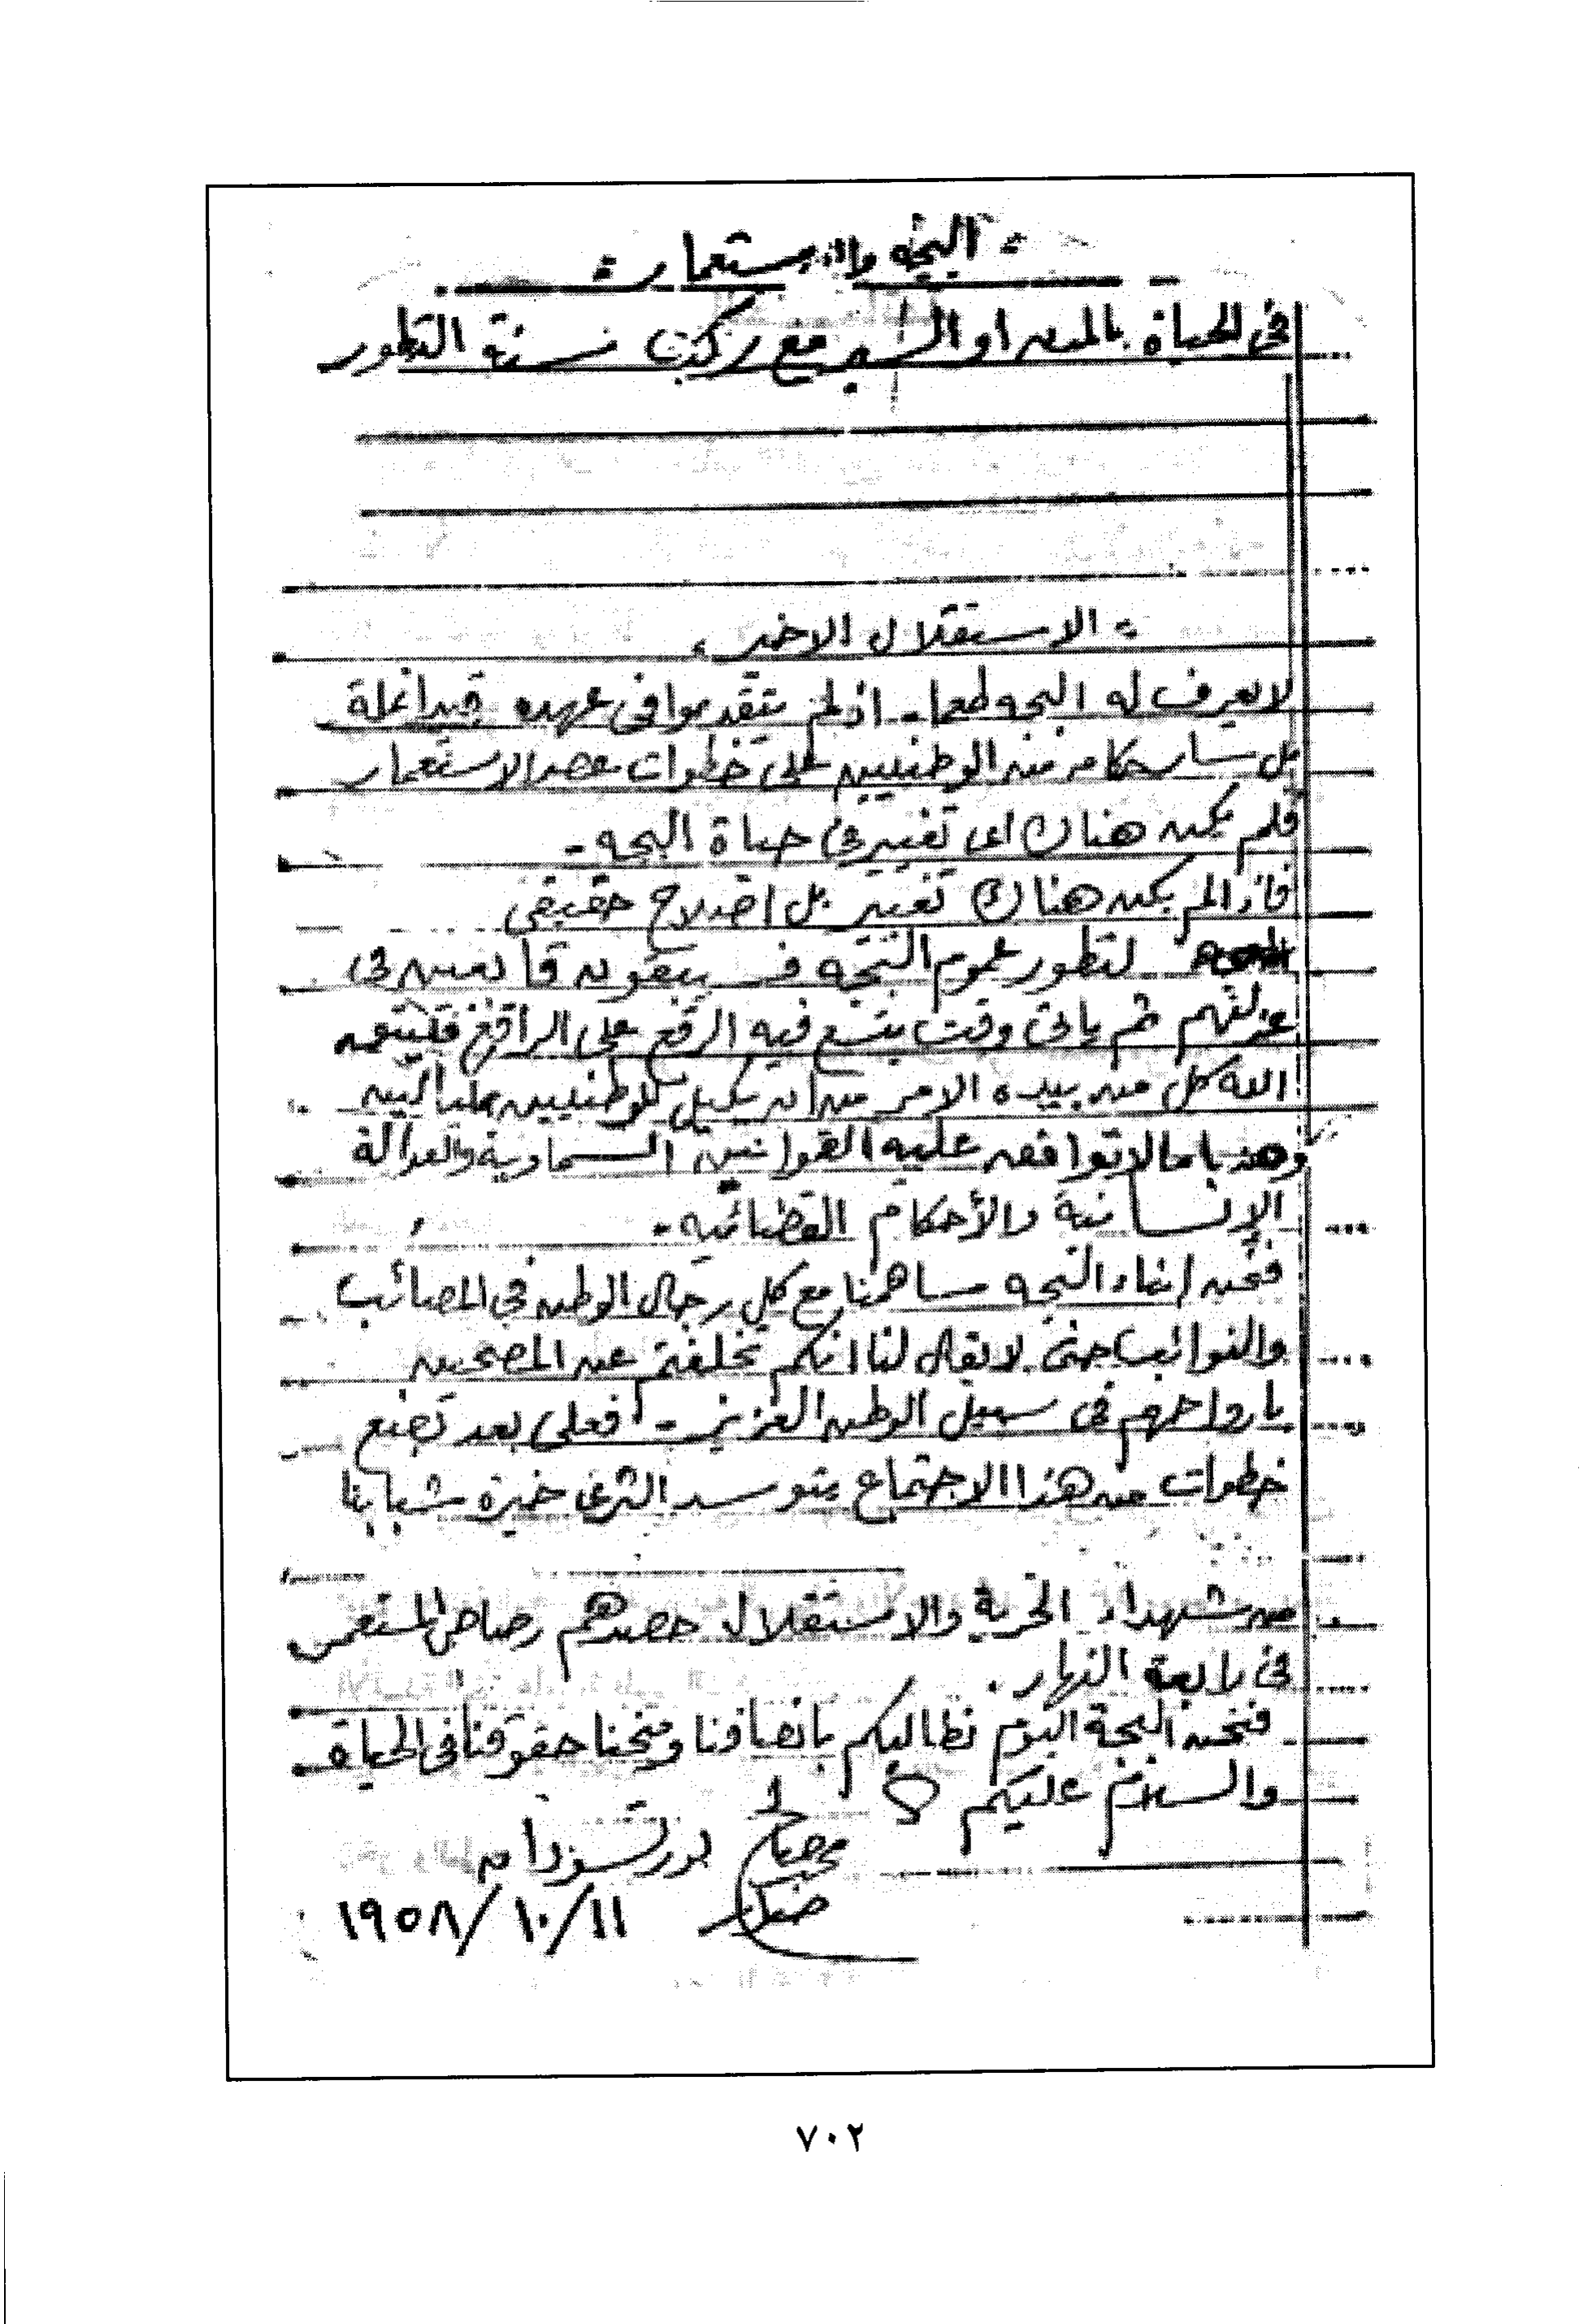 " البجه والاستعمار "
في الحياة بالمدن او السير مع ركب سنة التطور
" الاستقلال الاخير "
لا يعرف له البجه طعما - اذ لم يتقدموا في عهده قيد انملة
بل سار حكامه من الوطنيين على خطوات عصر الاستعمار
فلم يكن هناك اى تغيير في حياة البجه -
فاذا لم يكن هناك تغيير بل اصلاح حقيقي
لتطور عموم البجه فسيبقون قابعين في
عزلتهم ثم يأتى وقت يتسع فيه الرقع على الراقع
الله كل من بيده الامر من ان يكيل للوطنيين بمكيالين
وهذا ما لا توافق عليه القوانين السماوية والعدالة
الإنسانية والأحكام القضائيه -
فنحن ابناء البجه ساهمنا مع كل رجال الوطن في المصائب
والنوائب حتى لا يقال لنا انكم تخلفتم عن المضحين
بارواحهم في سبيل الوطن العزيز - فعلى بعد بضع
خطوات من هذا الاجتماع يتوسد الثرى خيرة شبابنا
من شهداء الحرية والاستقلال حصدهم رصاص المستعمر
في رابعة النهار .
فنحن البجة اليوم نطالبكم بانصافنا ومنحنا حقوقنا في الحياة
والسلام عليكم
بورتسودان
١٩٥٨/١٠/١١
٧٠٢